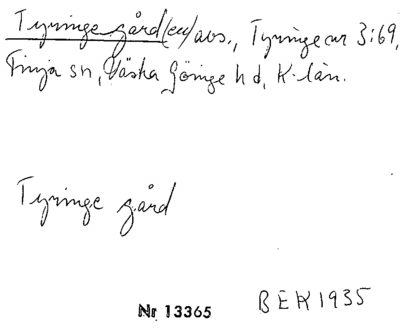 Tyringe gård(en) avs., Tyringe nr 3:69,
Finja sn, Västra Göinge hd, K-län.
Tyringe gård
Nr 13365 BEK 1935